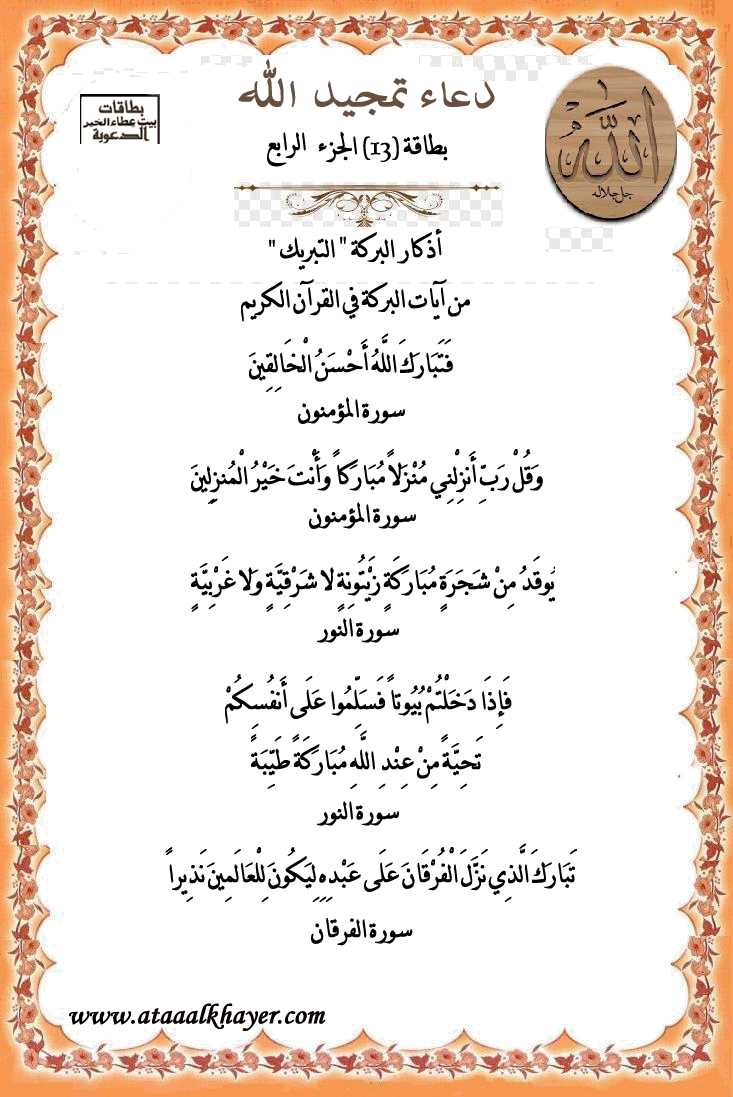 دعاء تمجيد الله
بطاقات
بيت عطاء الخير
الدعوية
الله
جل جلاله
بطاقة (13) الجزء الرابع
أذكار البركة " التبريك "
من آيات البركة في القرآن الكريم
فَتَبَارَكَ اللَّهُ أَحْسَنُ الْخَالِقِينَ
سورة المؤمنون
وَقُلْ رَبِّ أَنزِلْنِي مُنْزَلاً مُبَارَكاً وَأَنْتَ خَيْرُ الْمُنزِلِينَ
سورة المؤمنون
يُوقَدُ مِنْ شَجَرَةٍ مُبَارَكَةٍ زَيْتُونِةٍ لا شَرْقِيَّةٍ وَلا غَرْبِيَّةٍ
سورة النور
فَإِذَا دَخَلْتُمْ بُيُوتاً فَسَلِّمُوا عَلَى أَنفُسِكُمْ
تَحِيَّةً مِنْ عِنْدِ اللَّهِ مُبَارَكَةً طَيِّبَةً
سورة النور
تَبَارَكَ الَّذِي نَزَّلَ الْفُرْقَانَ عَلَى عَبْدِهِ لِيَكُونَ لِلْعَالَمِينَ نَذِيراً
سورة الفرقان
www.ataaalkhayer.com